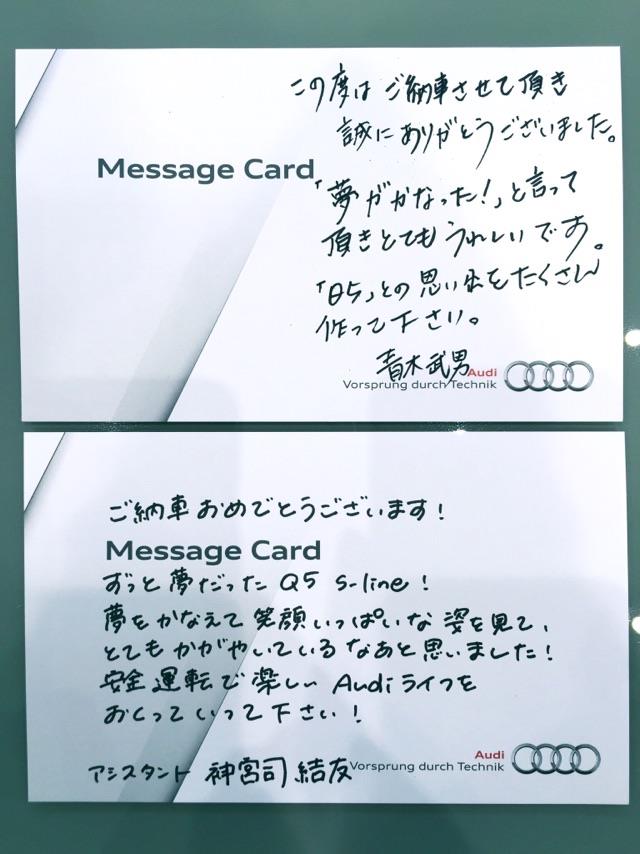 この度は ご納車させて頂き
誠にありがとうございました。
Message Card
「夢がかなった!」と言って
頂きとてもうれしいです。
「Q5」との思い出をたくさん
作って下さい。
青木武男
Audi
Vorsprung durch Technik
ご納車おめでとうございます!
Message Card
ずっと夢だった Q5 S-line!
夢をかなえて笑顔いっぱいな姿を見て、
とてもかがやいているなあと思いました!
安全運転で楽しいAudiライフを
おくっていって下さい!
アシスタント 神宮司 結友
Audi
Vorsprung durch Technik